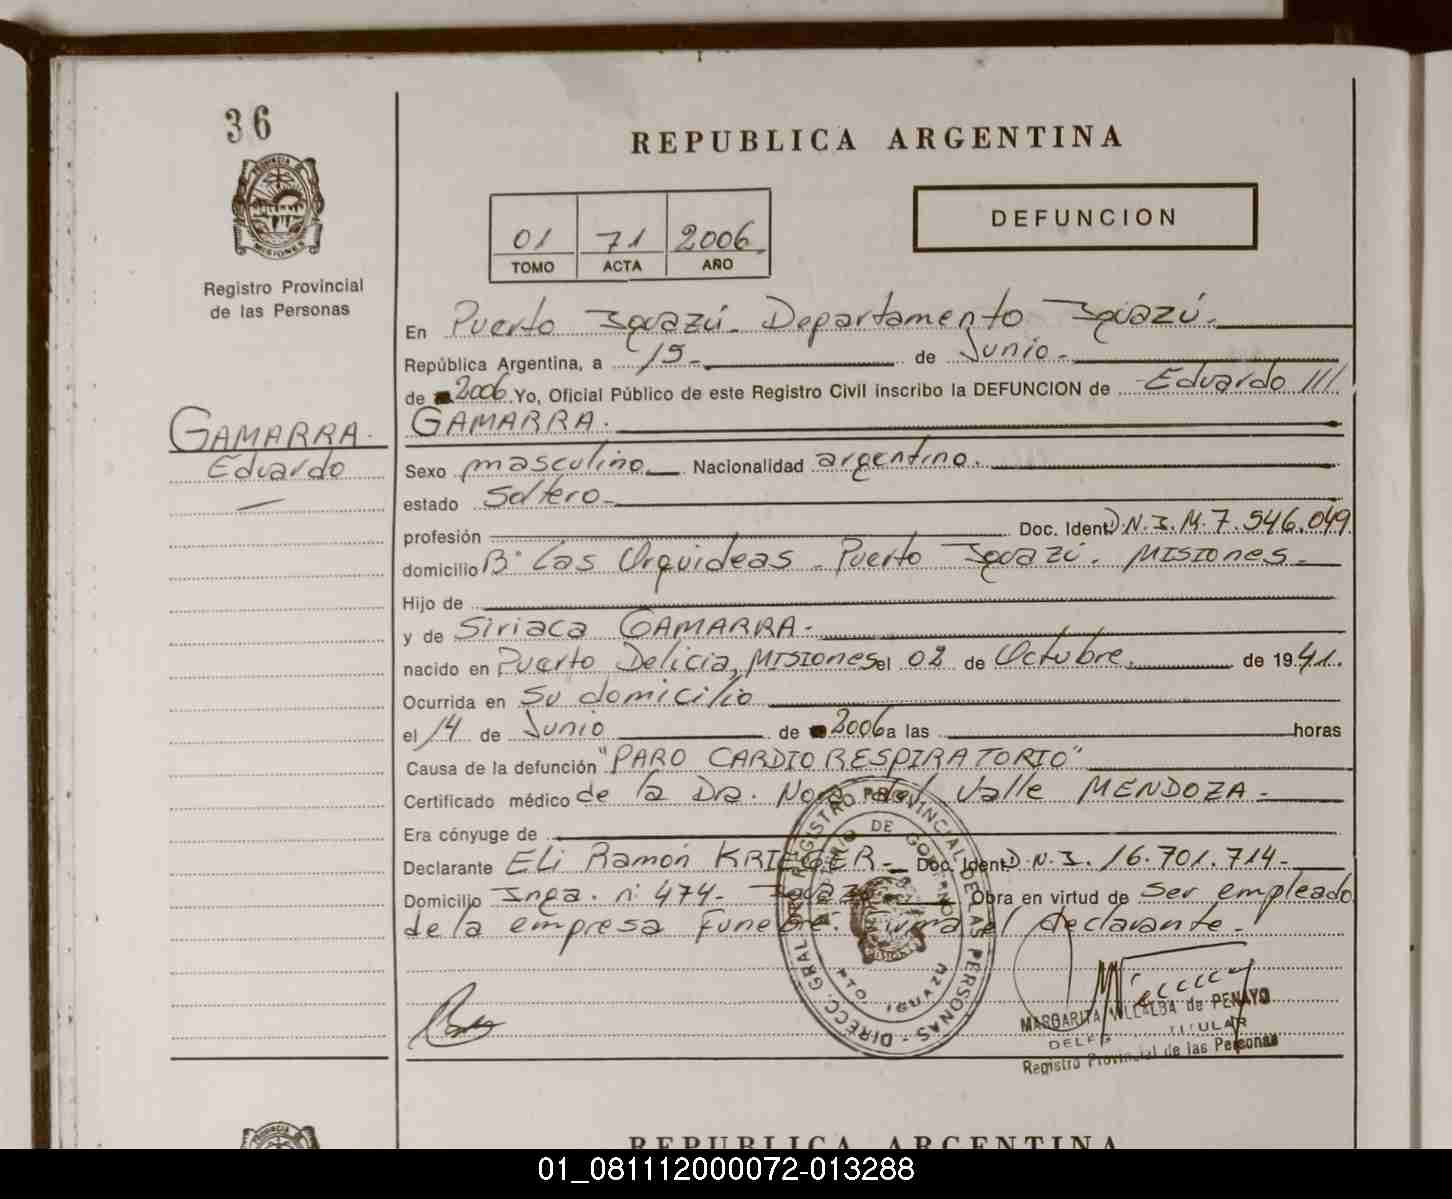 36
PROVINCIA DE
MISIONES
Registro Provincial
de las Personas
GAMARRA.
Eduardo
REPUBLICA ARGENTINA
01 71 2006
TOMO ACTA AÑO
DEFUNCION
En Puerto Iguazú - Departamento Iguazú.
República Argentina, a 15 - de Junio -
de 2006 Yo, Oficial Público de este Registro Civil inscribo la DEFUNCION de Eduardo ///
GAMARRA.
Sexo masculino Nacionalidad argentino.
estado Soltero -
profesión Doc. Ident. D.N.I. M. 7.546.049
domicilio Bº Las Orquideas - Puerto Iguazú. MISIONES -
Hijo de
y de Siriaca GAMARRA -
nacido en Puerto Delicia, MISIONES el 02 de Octubre. de 1941.
Ocurrida en Su domicilio
el 14 de Junio de 2006 a las horas
Causa de la defunción "PARO CARDIO RESPIRATORIO"
Certificado médico de la Dra. Nora del Valle MENDOZA -
Era cónyuge de
Declarante Eli Ramón KRIEGER - Doc. Ident. D.N.I. 16.701.714 -
Domicilio Inga. nº 474 - Iguazú Obra en virtud de Ser empleado
de la empresa Funebre. Firma el declarante -
DIRECC. GRAL. DEL REGISTRO PROVINCIAL DE LAS PERSONAS
MINISTERIO DE GOBIERNO
PTO. IGUAZU
MARGARITA VILLALBA de PENAYO
TITULAR
Registro Provincial de las Personas
REPUBLICA ARGENTINA
01_081112000072-013288